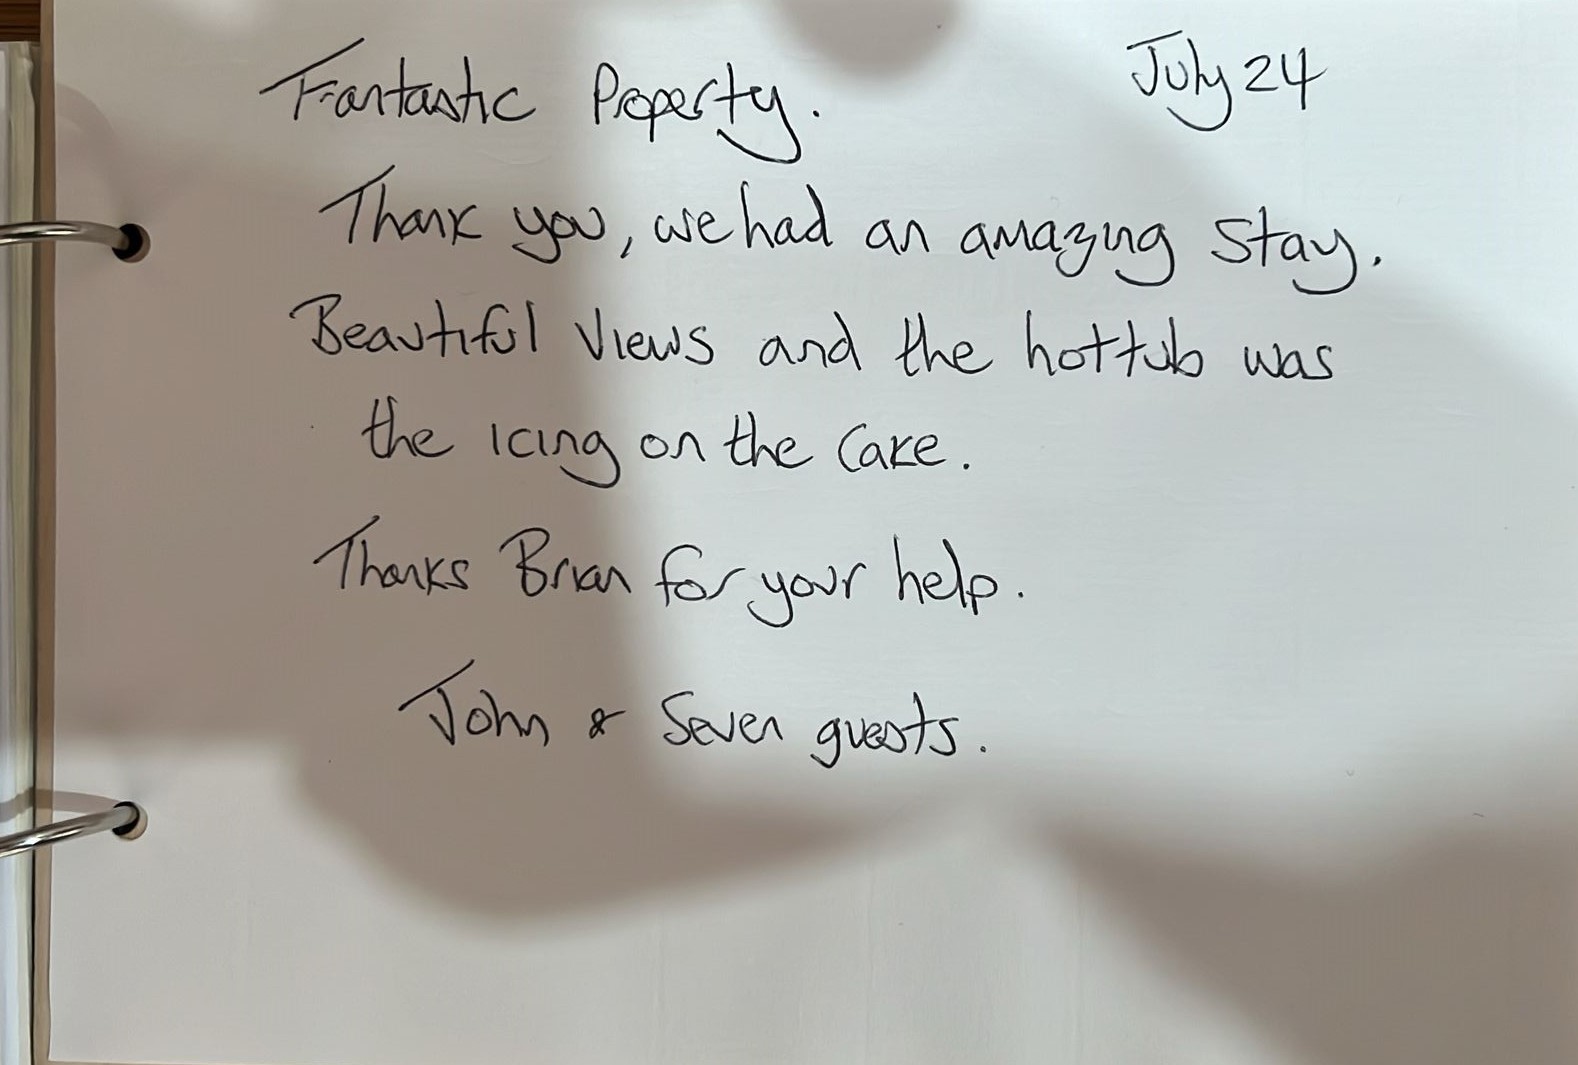 Fantastic Property. July 24
Thank you, we had an amazing stay.
Beautiful Views and the hottub was
the icing on the cake.
Thanks Brian for your help.
John & Seven guests.